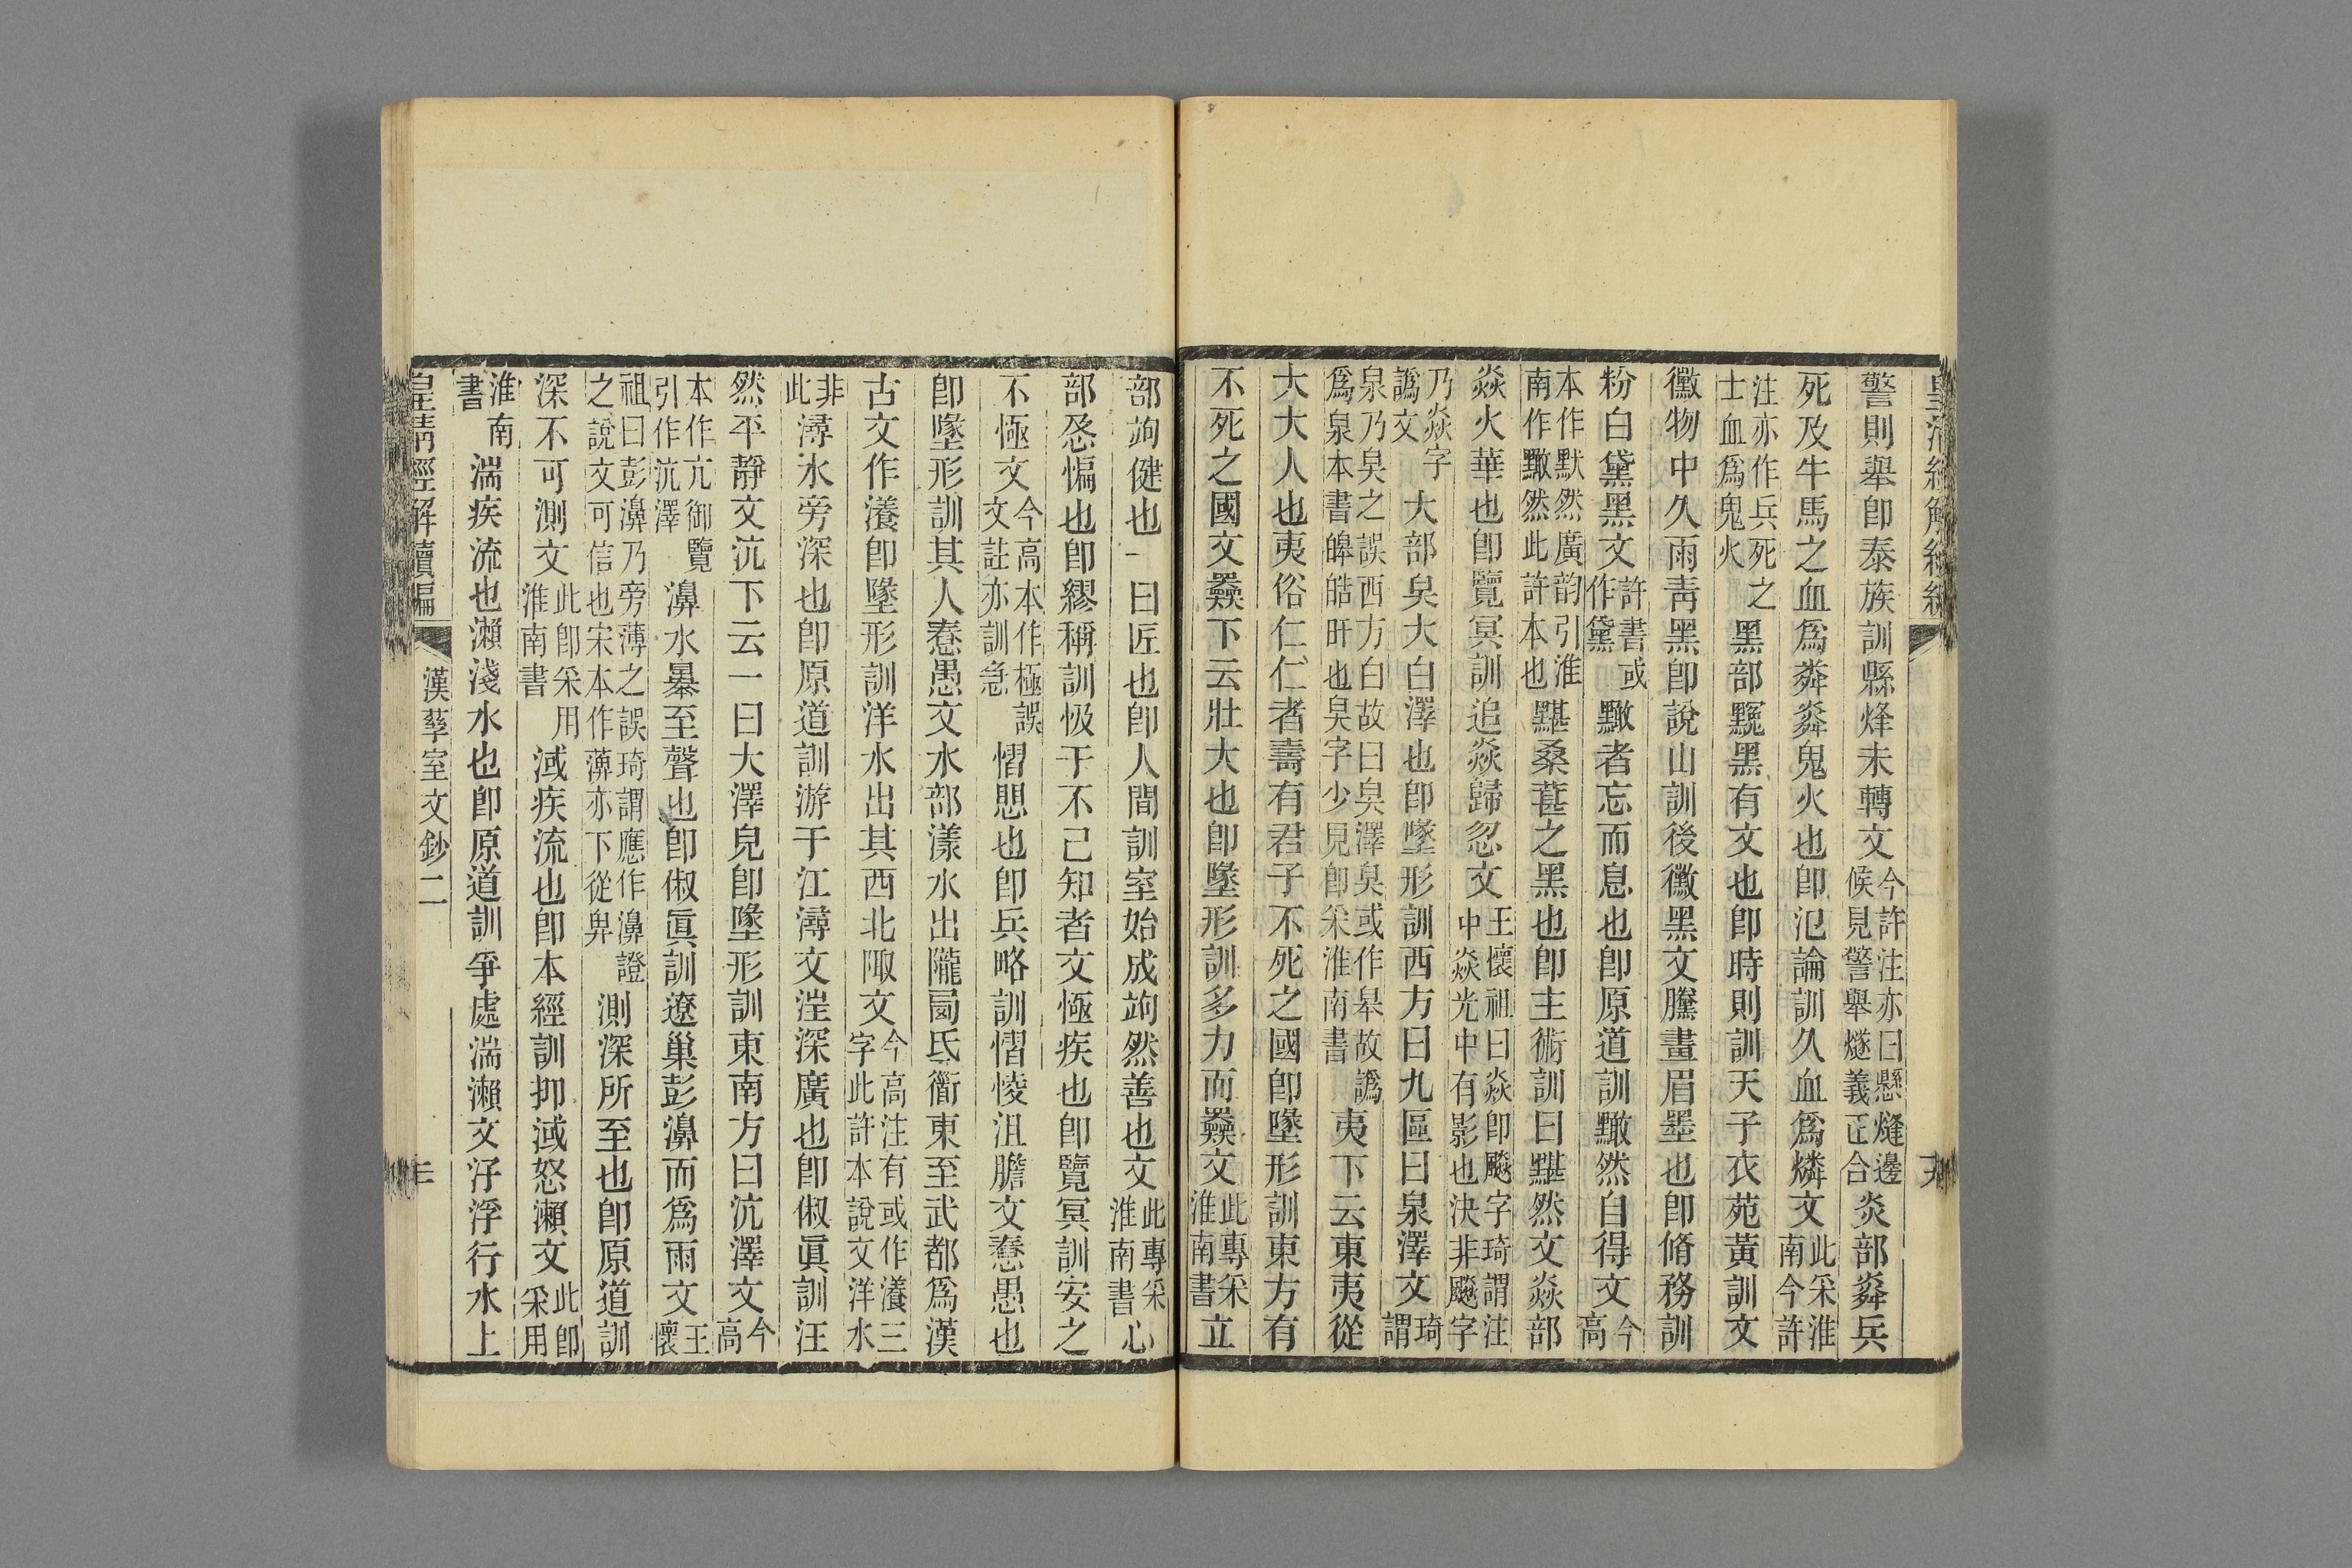 皇清經解續編
警則舉卽泰族訓縣烽未轉文今許注亦曰懸㷭邊候見警舉燧義正合炎部粦兵
死及牛馬之血爲粦粦鬼火也卽氾論訓久血爲燐文此采淮南今許
注亦作兵死之士血爲鬼火黑部䵳黑有文也卽時則訓天子衣苑黃訓文
黴物中久雨靑黑卽說山訓後黴黑文黱畫眉墨也卽脩務訓
粉白黛黑文許書或作黛黝者忘而息也卽原道訓黝然自得文今高
本作默然廣韵引淮南作黝然此許本也黮桑葚之黑也卽主術訓曰黮然文焱部
焱火華也卽覽冥訓追焱歸忽文王懷祖曰焱卽飈字琦謂注中焱光中有影也決非飈字
乃焱字譌文大部㚖大白澤也卽墬形訓西方曰九區曰泉澤文琦謂
泉乃㚖之誤西方白故曰㚖澤㚖或作皋故譌爲泉本書皞皓旰也㚖字少見卽采淮南書夷下云東夷從
大大人也夷俗仁仁者壽有君子不死之國卽墬形訓東方有
不死之國文㚠下云壯大也卽墬形訓多力而㚠文此專采淮南書立
部竘健也一曰匠也卽人閒訓室始成竘然善也文此專采淮南書心
部恖惼也卽繆稱訓忣于不己知者文極疾也卽覽冥訓安之
不極文今高本作極誤文註亦訓急慴愳也卽兵略訓慴㥄沮膽文惷愚也
卽墬形訓其人惷愚文水部漾水出隴㞾氐衜東至武都爲漢
古文作瀁卽墬形訓洋水出其西北陬文今高注有或作瀁三字此許本說文洋水
非此潯水旁深也卽原道訓游于江潯文滢深廣也卽俶眞訓汪
然平靜文沆下云一曰大澤皃卽墬形訓東南方曰沆澤文今高
本作亢御覽引作沆澤濞水㬥至聲也卽俶眞訓遼巢彭濞而爲雨文王懷
祖曰彭濞乃旁薄之誤琦謂應作濞證之說文可信也宋本作薄亦下從畀測深所至也卽原道訓
深不可測文此卽采用淮南書淢疾流也卽本經訓抑淢怒瀨文此卽采用
淮南書湍疾流也瀨淺水也卽原道訓爭處湍瀨文汓浮行水上
皇淸經解續編 漢孳室文鈔二